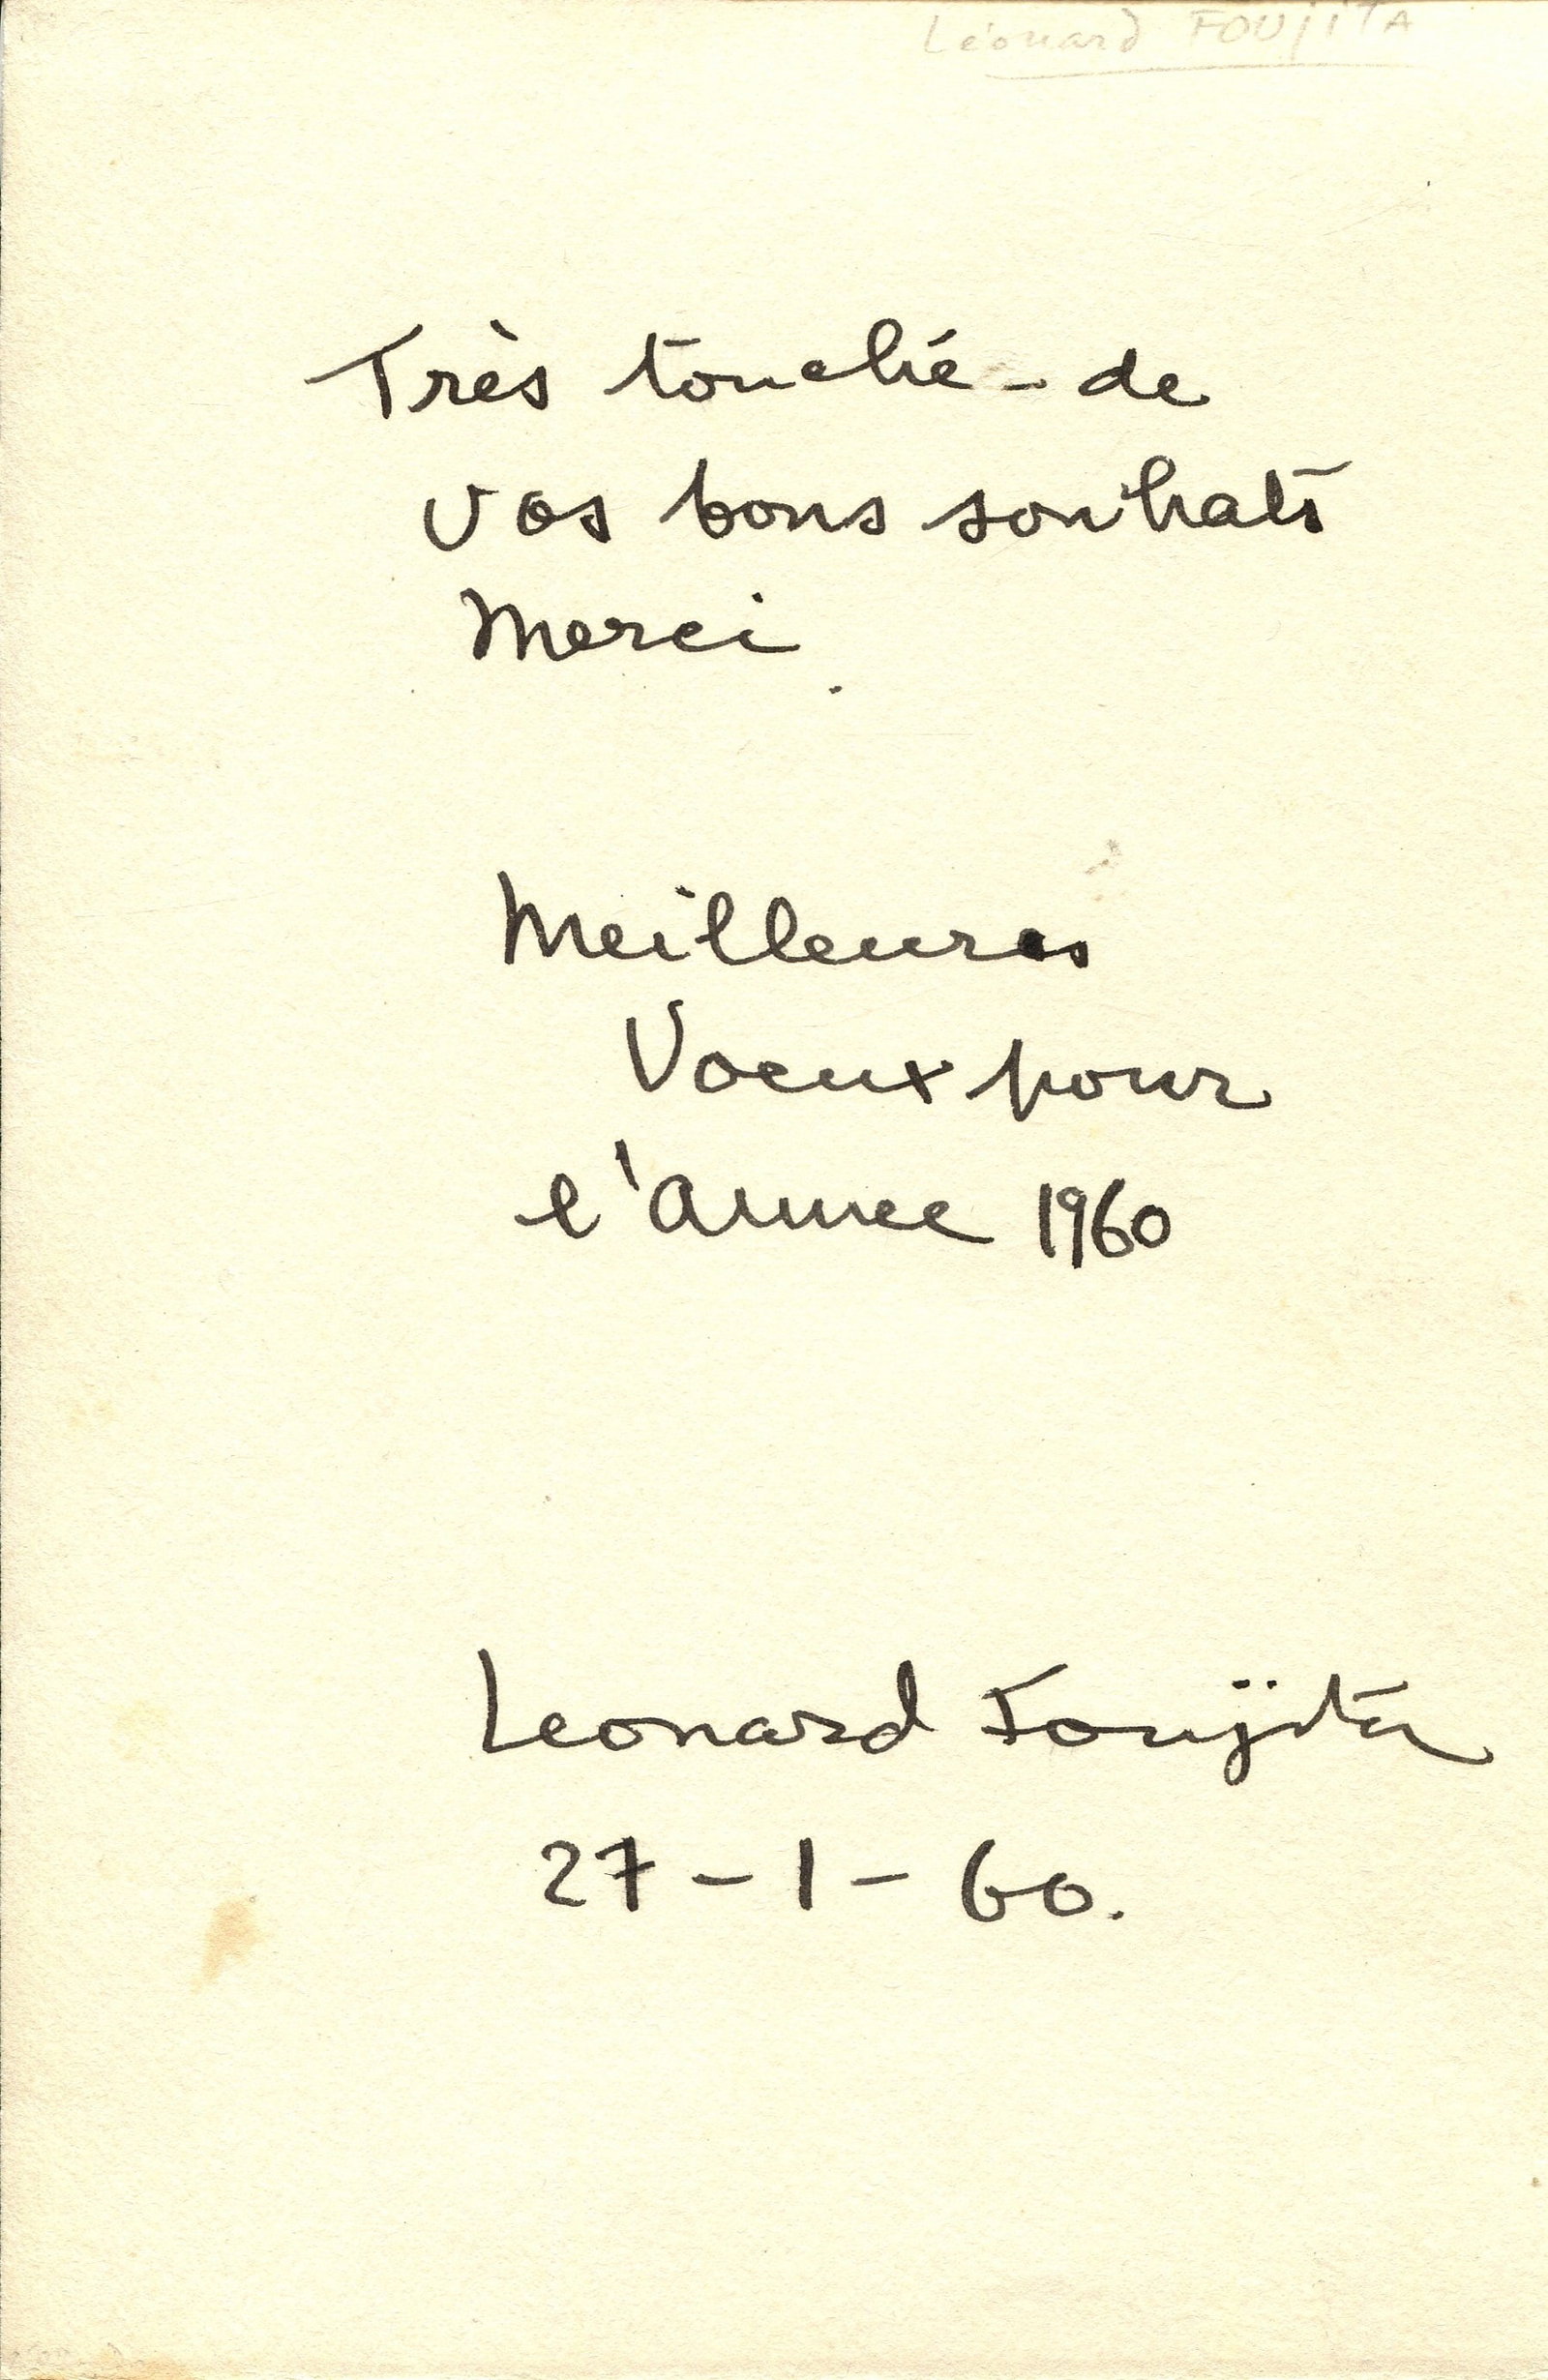 Léonard FOUjiTA
Très touché - de
vos bons souhats
Merci.
Meilleures
Voeux pour
l'annee 1960
Leonard Foujita
27 - 1 - 60.